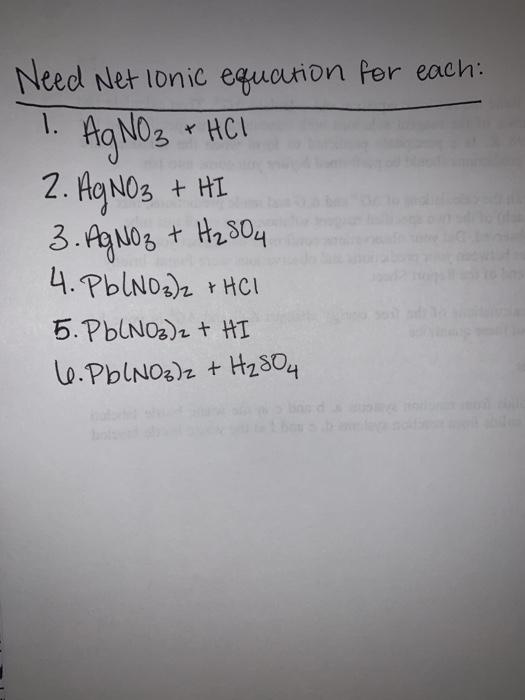 Need Net Ionic equation for each:
1. AgNO3 + HCl
2. AgNO3 + HI
3. AgNO3 + H2SO4
4. Pb(NO3)2 + HCl
5. Pb(NO3)2 + HI
6. Pb(NO3)2 + H2SO4